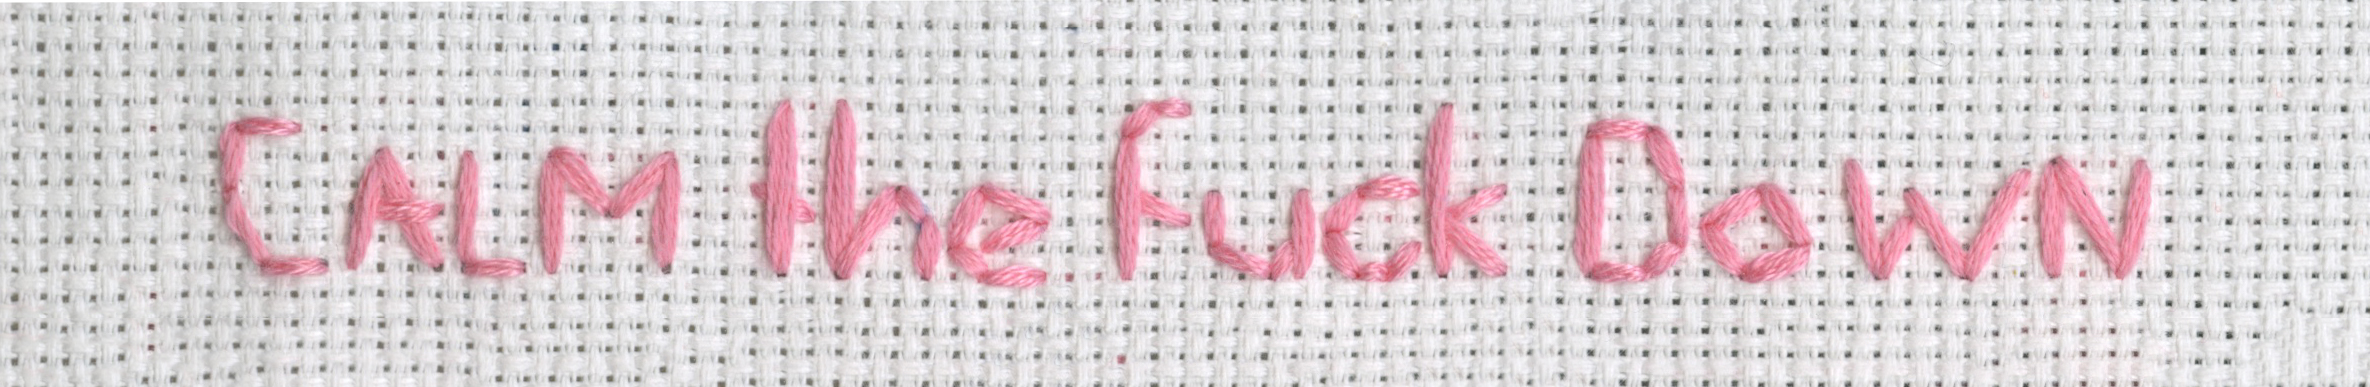 CALM the fuck DoWN